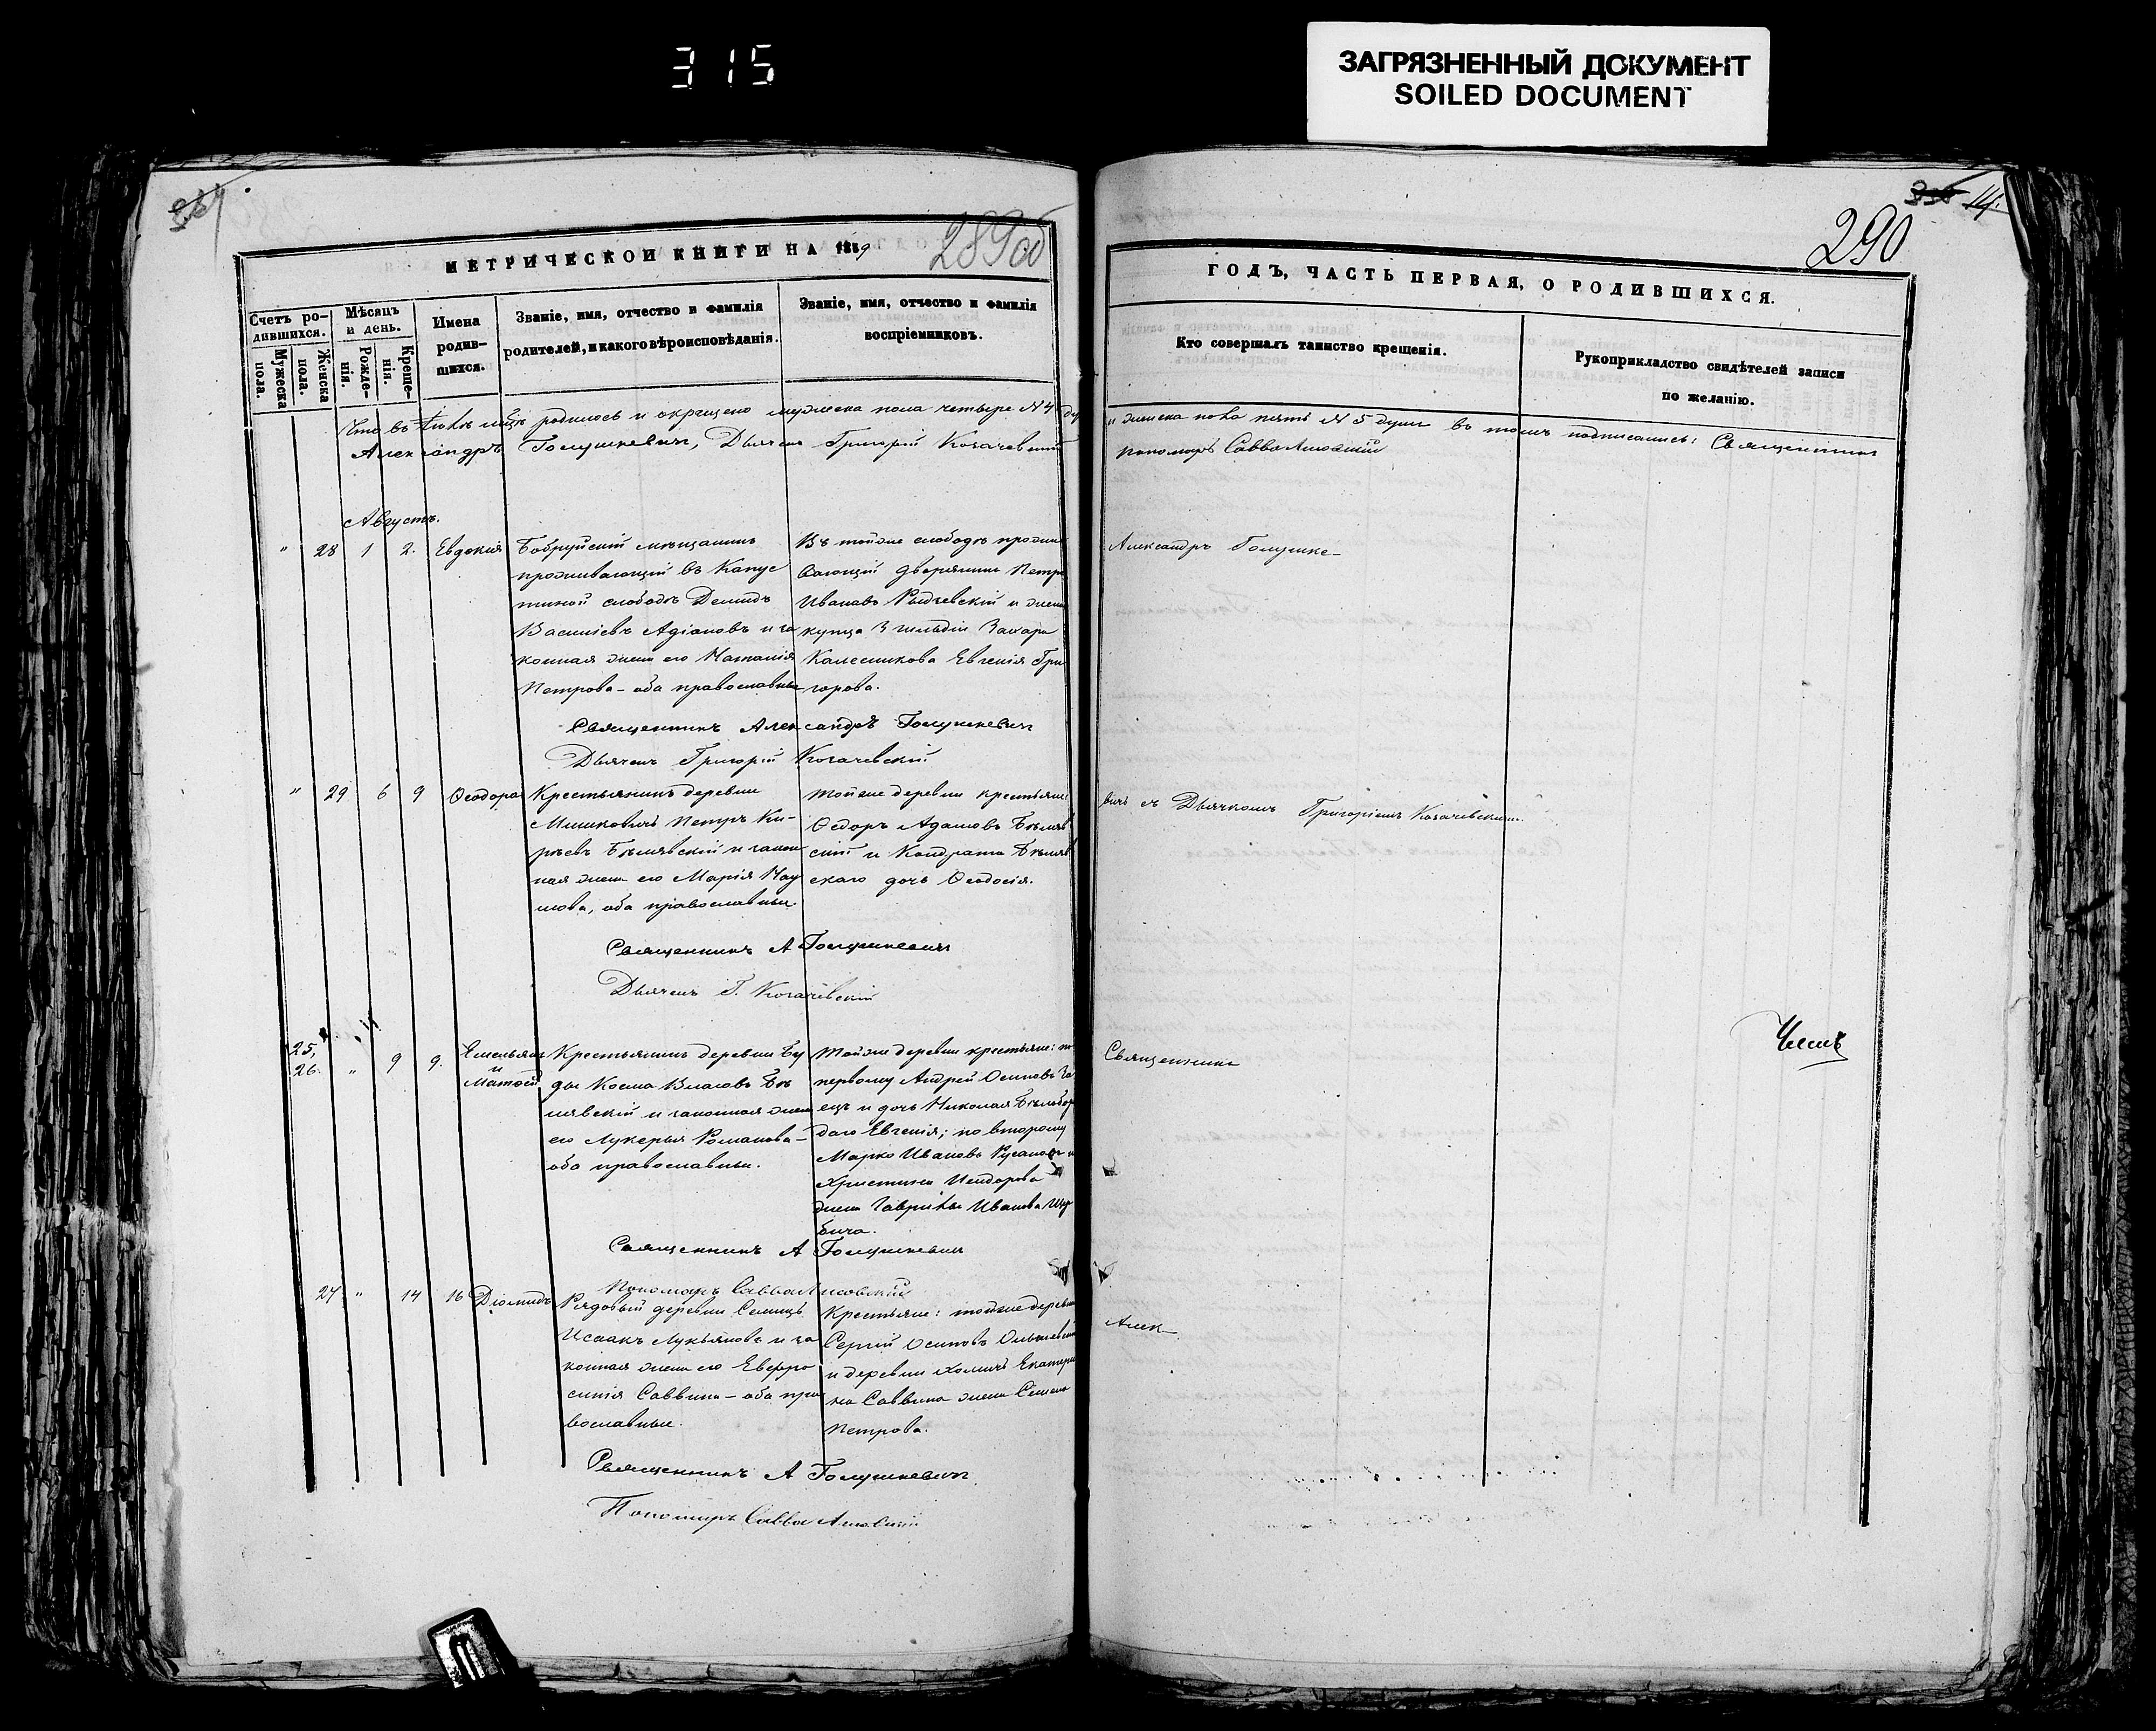 315
ЗАГРЯЗНЕННЫЙ ДОКУМЕНТ
SOILED DOCUMENT
289об
МЕТРИЧЕСКОИ КНИГИ НА 1859
Счетъ ро-
дившихся.
Мужеска
пола.
Женска
пола.
Мѣсяцъ
и день.
Рожде-
нія.
Креще-
нія.
Имена
родив-
шихся.
Званіе, имя, отчество и фамилія
родителей, и какого вѣроисповѣданія.
Званіе, имя, отчество и фамилія
воспріемниковъ.
Что въ Іюлѣ м-цѣ родилось и окрещено мужеска пола четыре №4 ду
Александръ Голушкевичъ, Дьячекъ Григорій Козачевскій
Августъ.
" 28 1 2. Евдокія
Бобруйскій мѣщанинъ
проживающій въ Капус
тиной слободѣ Демидъ
Васильевъ Адіановъ и за
конная жена его Наталія
Петрова - оба православные
Въ тойже слободѣ прожи
вающій дворянинъ Петръ
Ивановъ Рыдчевскій и жена
купца 3 гильдіи Захара
Калесникова Евгенія Гри
горова.
Священникъ Александръ Голушкевичъ
Дьячекъ Григорій Козачевскій
" 29 6 9 Ѳеодора
Крестьянинъ деревни
Мишковичъ Петръ Ки-
рѣевъ Бѣлявскій и закон
ная жена его Марія Нау
мова, оба православные.
Тойже деревни крестьяне:
Ѳедоръ Адамовъ Бѣляв
скій и Кондрата Бѣляв
скаго дочь Ѳеодосія.
Священникъ А Голушкевичъ
Дьячекъ Г. Козачевскій
25,
26. " 9 9. Емельянъ
и
Матѳей
Крестьянинъ деревни Бу
ды Косма Власовъ Бѣ
лявскій и законная жена
его Лукерья Романова -
оба православные.
Тойже деревни крестьяне: по
первому Андрей Осиповъ За
ецъ и дочь Николая Бѣлобор
даго Евгенія; по второму
Марко Ивановъ Русановъ и
Христина Исидорова
жена Гаврилы Иванова Шу
бича.
Священникъ А Голушкевичъ
Пономарь Савва Лисовскій
27 " 14 16 Діомидъ
Рядовый деревни Селищъ
Исаакъ Лукьяновъ и за
конная жена его Евфро
синія Саввина - оба пра
вославные.
Крестьяне: тойже деревни
Сергій Осиповъ Ольшевскій
и деревни Хомичъ Екатери
на Саввина жена Семена
Петрова.
Священникъ А Голушкевичъ
Пономарь Савва Лисовскій
14.
290
ГОДЪ, ЧАСТЬ ПЕРВАЯ, О РОДИВШИХСЯ.
Кто совершалъ таинство крещенія.
Рукоприкладство свидѣтелей записи
по желанію.
и женска пола пять №5 душъ въ томъ подписались: Священникъ
Пономарь Савва Лисовскій
Александръ Голушке-
вичъ съ Дьячкомъ Григоріемъ Козачевскимъ.
Священникъ
Алек